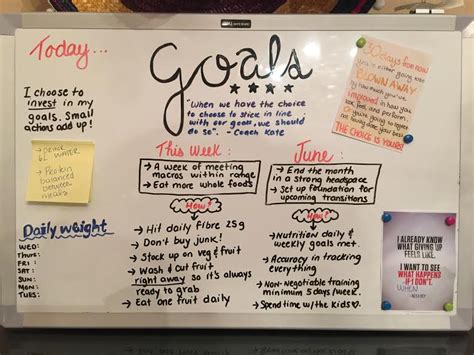 Today...
I choose to
invest in my
goals. Small
actions add up!
Goals
"When we have the choice
to choose to stick in line
with our goals, we should
do so". - Coach Kate
30 days from now
you're either going to be
BLOWN AWAY
by how much you've
improved in how you
look, feel, and perform
THE CHOICE IS YOURS!
6L water
Protein
balanced
between
meals
Daily weight
WED:
THUR:
FRI :
SAT:
SUN:
MON:
TUES:
This Week:
→ A week of meeting
macros within range
→ Eat more whole foods
How?
→ Hit daily fibre 25g
→ Don't buy junk!
→ Stock up on veg & fruit
→ Wash & cut fruit
right away so it's always
ready to grab
→ Eat one fruit daily
June:
→ End the month
in a strong headspace
→ Set up foundation for
upcoming transitions
How?
→ Nutrition daily &
weekly goals met.
→ Accuracy in tracking
everything
→ Non-negotiable training
minimum 5 days/week.
→ Spend time w/the kids♡.
I ALREADY KNOW
WHAT GIVING UP
FEELS LIKE.
I WANT TO SEE
WHAT HAPPENS
IF I DON'T.
WHEN